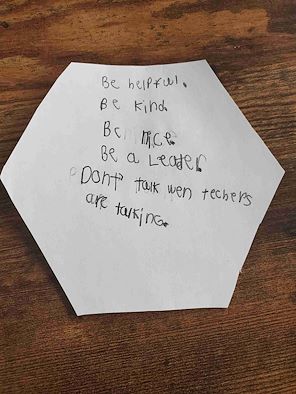 Be helpful.
Be kind.
Be nice.
Be a Leader
Dont talk wen techers
are talking.